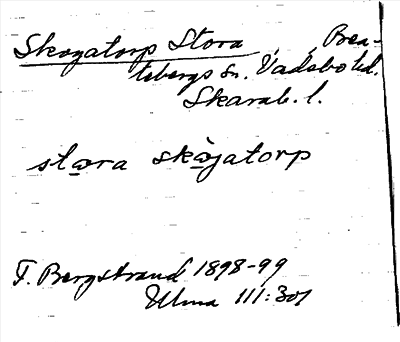 Skogatorp Stora, Brea-
tebergs sn. Vadsbo hd.
Skarab. l.
stọra skọ̀gatorp
F. Bergstrand 1898-99
Ulma 111:301